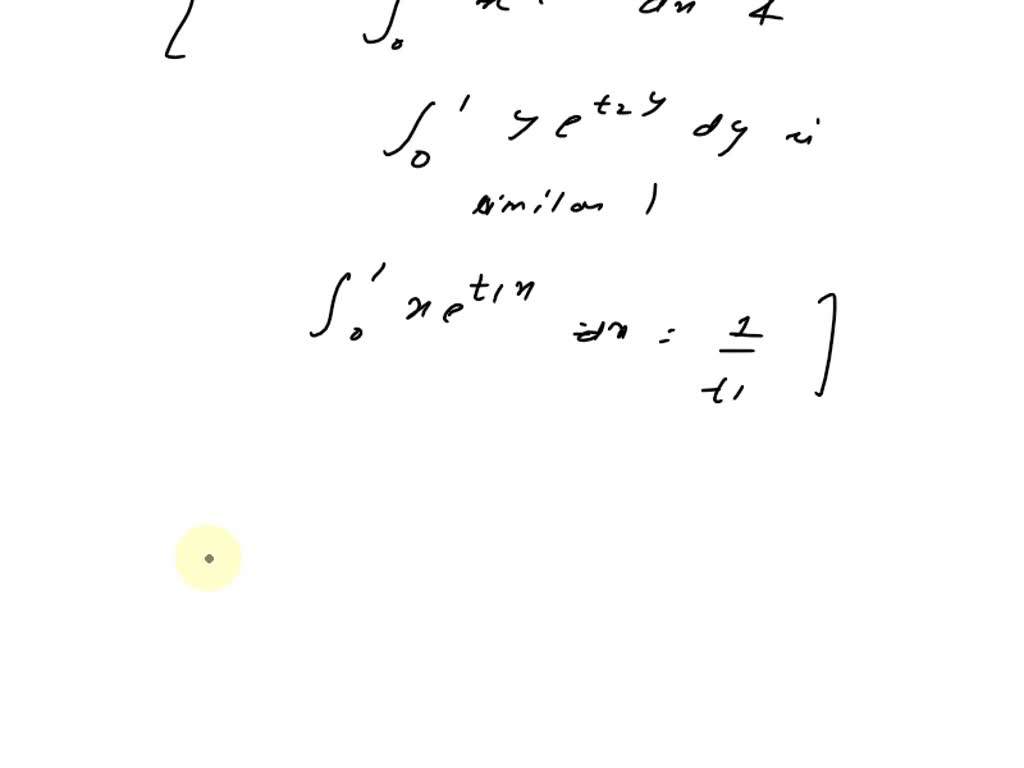 [ ∫₀ dx &
∫₀¹ y e^{t₂y} dy is
similar )
∫₀¹ x e^{t₁x} dx = 1/t₁ ]